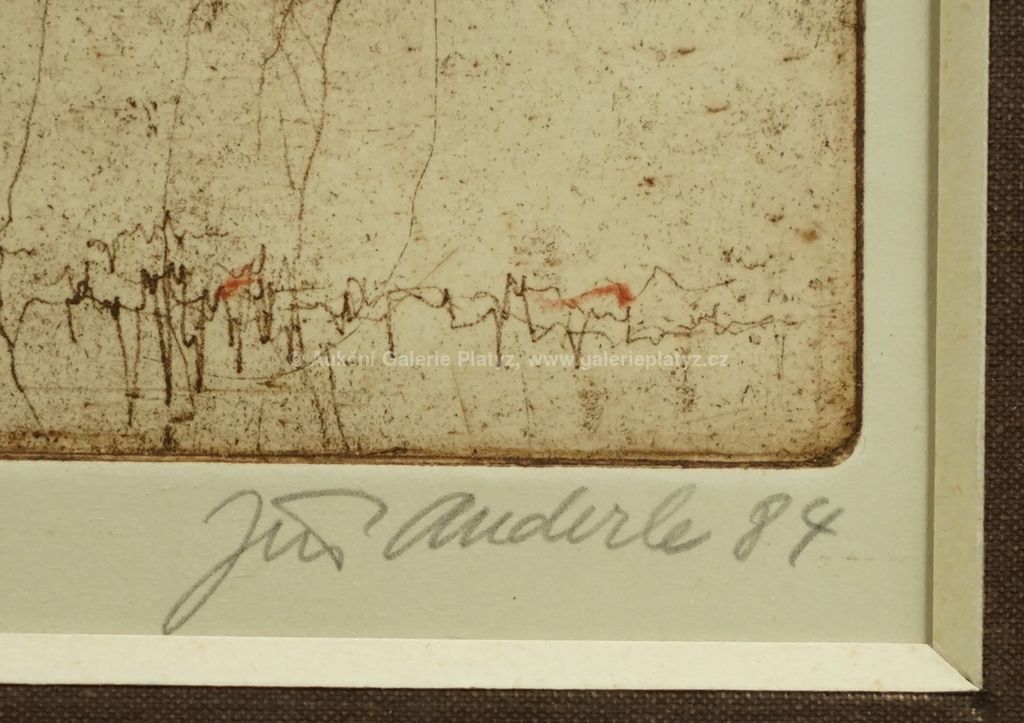 © Aukční Galerie Platýz, www.galerieplatyz.cz
Jiří Anderle 84